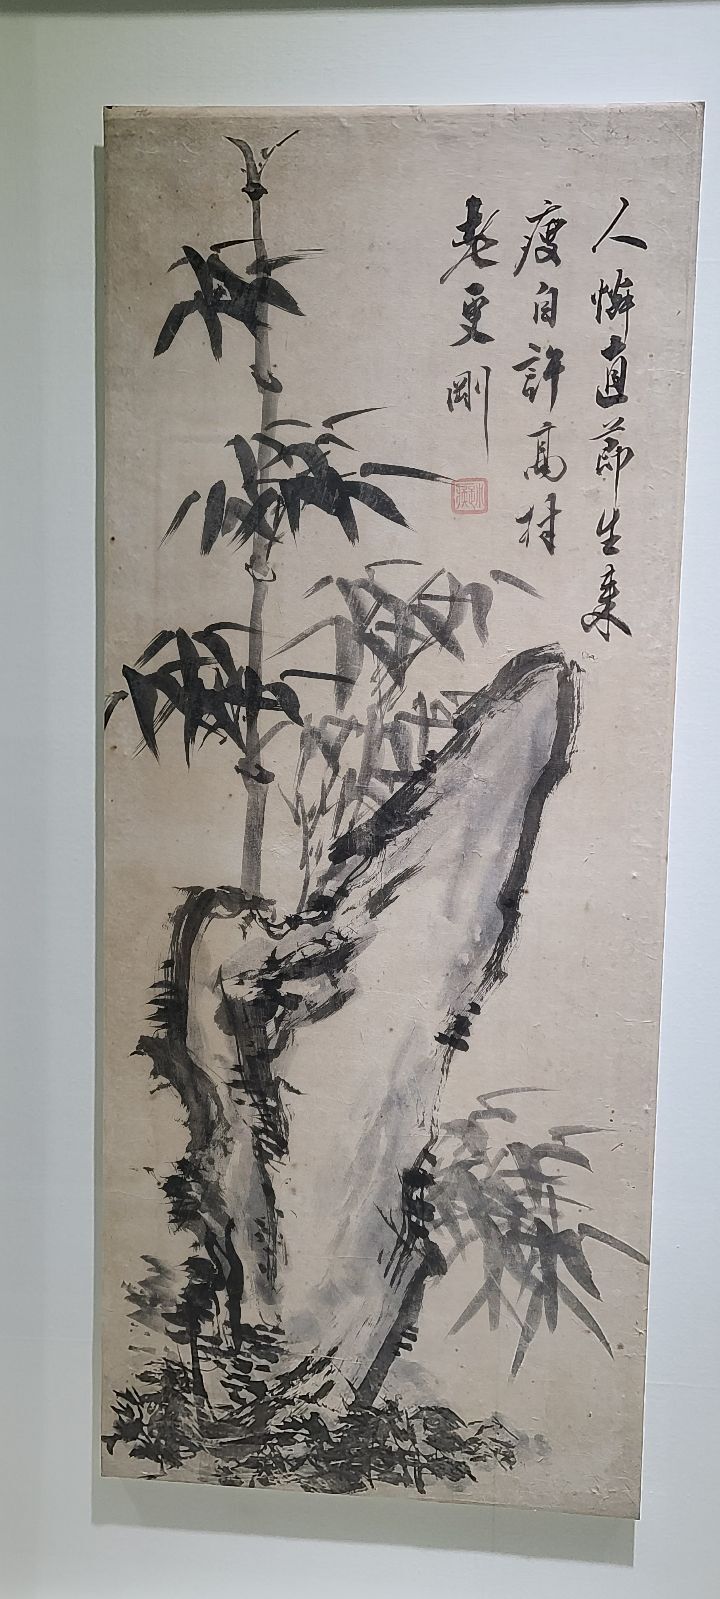 人憐直節生來
瘦自許高材
老更剛